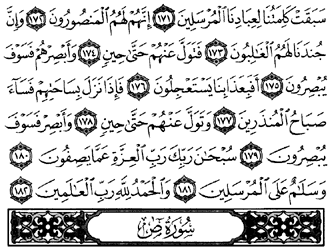 سَبَقَتْ كَلِمَتُنَا لِعِبَادِنَا الْمُرْسَلِينَ ﴿١٧١﴾ إِنَّهُمْ لَهُمُ الْمَنصُورُونَ ﴿١٧٢﴾ وَإِنَّ
جُندَنَا لَهُمُ الْغَالِبُونَ ﴿١٧٣﴾ فَتَوَلَّ عَنْهُمْ حَتَّىٰ حِينٍ ﴿١٧٤﴾ وَأَبْصِرْهُمْ فَسَوْفَ
يُبْصِرُونَ ﴿١٧٥﴾ أَفَبِعَذَابِنَا يَسْتَعْجِلُونَ ﴿١٧٦﴾ فَإِذَا نَزَلَ بِسَاحَتِهِمْ فَسَاءَ
صَبَاحُ الْمُنذَرِينَ ﴿١٧٧﴾ وَتَوَلَّ عَنْهُمْ حَتَّىٰ حِينٍ ﴿١٧٨﴾ وَأَبْصِرْ فَسَوْفَ
يُبْصِرُونَ ﴿١٧٩﴾ سُبْحَانَ رَبِّكَ رَبِّ الْعِزَّةِ عَمَّا يَصِفُونَ ﴿١٨٠﴾
وَسَلَامٌ عَلَى الْمُرْسَلِينَ ﴿١٨١﴾ وَالْحَمْدُ لِلَّهِ رَبِّ الْعَالَمِينَ ﴿١٨٢﴾
سُورَةُ ص